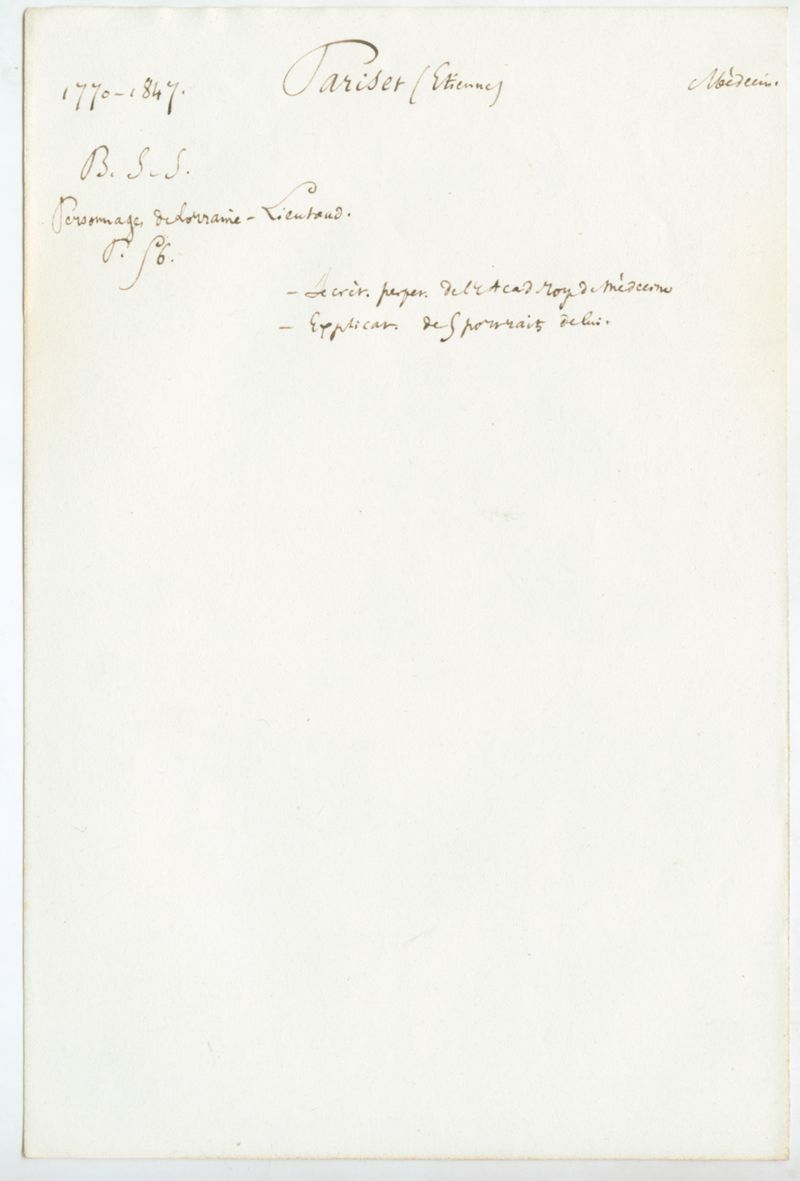 1770-1847. Pariset (Etienne) Médecin.
B. 5-5.
Personnages de Lorraine - Lieutaud.
P. 56.
- Secrét. perpet. de l'Acad roy de Médecine
- Explicat. de 5 portraits de lui.